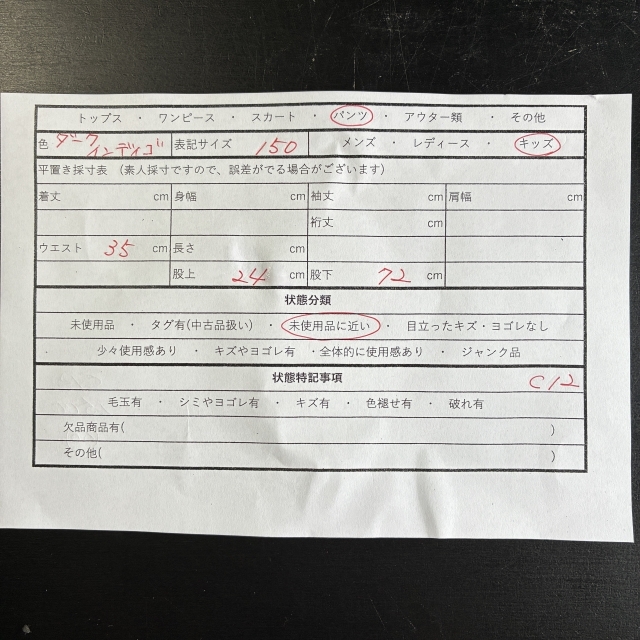 トップス ・ ワンピース ・ スカート ・ パンツ ・ アウター類 ・ その他
色 ダークインディゴ 表記サイズ 150 メンズ ・ レディース ・ キッズ
平置き採寸表 (素人採寸ですので、誤差がでる場合がございます)
着丈 cm 身幅 cm 袖丈 cm 肩幅 cm
裄丈 cm
ウエスト 35 cm 長さ cm
股上 24 cm 股下 72 cm
状態分類
未使用品 ・ タグ有(中古品扱い) ・ 未使用品に近い ・ 目立ったキズ・ヨゴレなし
少々使用感あり ・ キズやヨゴレ有 ・全体的に使用感あり ・ ジャンク品
状態特記事項 C12
毛玉有 ・ シミやヨゴレ有 ・ キズ有 ・ 色褪せ有 ・ 破れ有
欠品商品有( )
その他( )